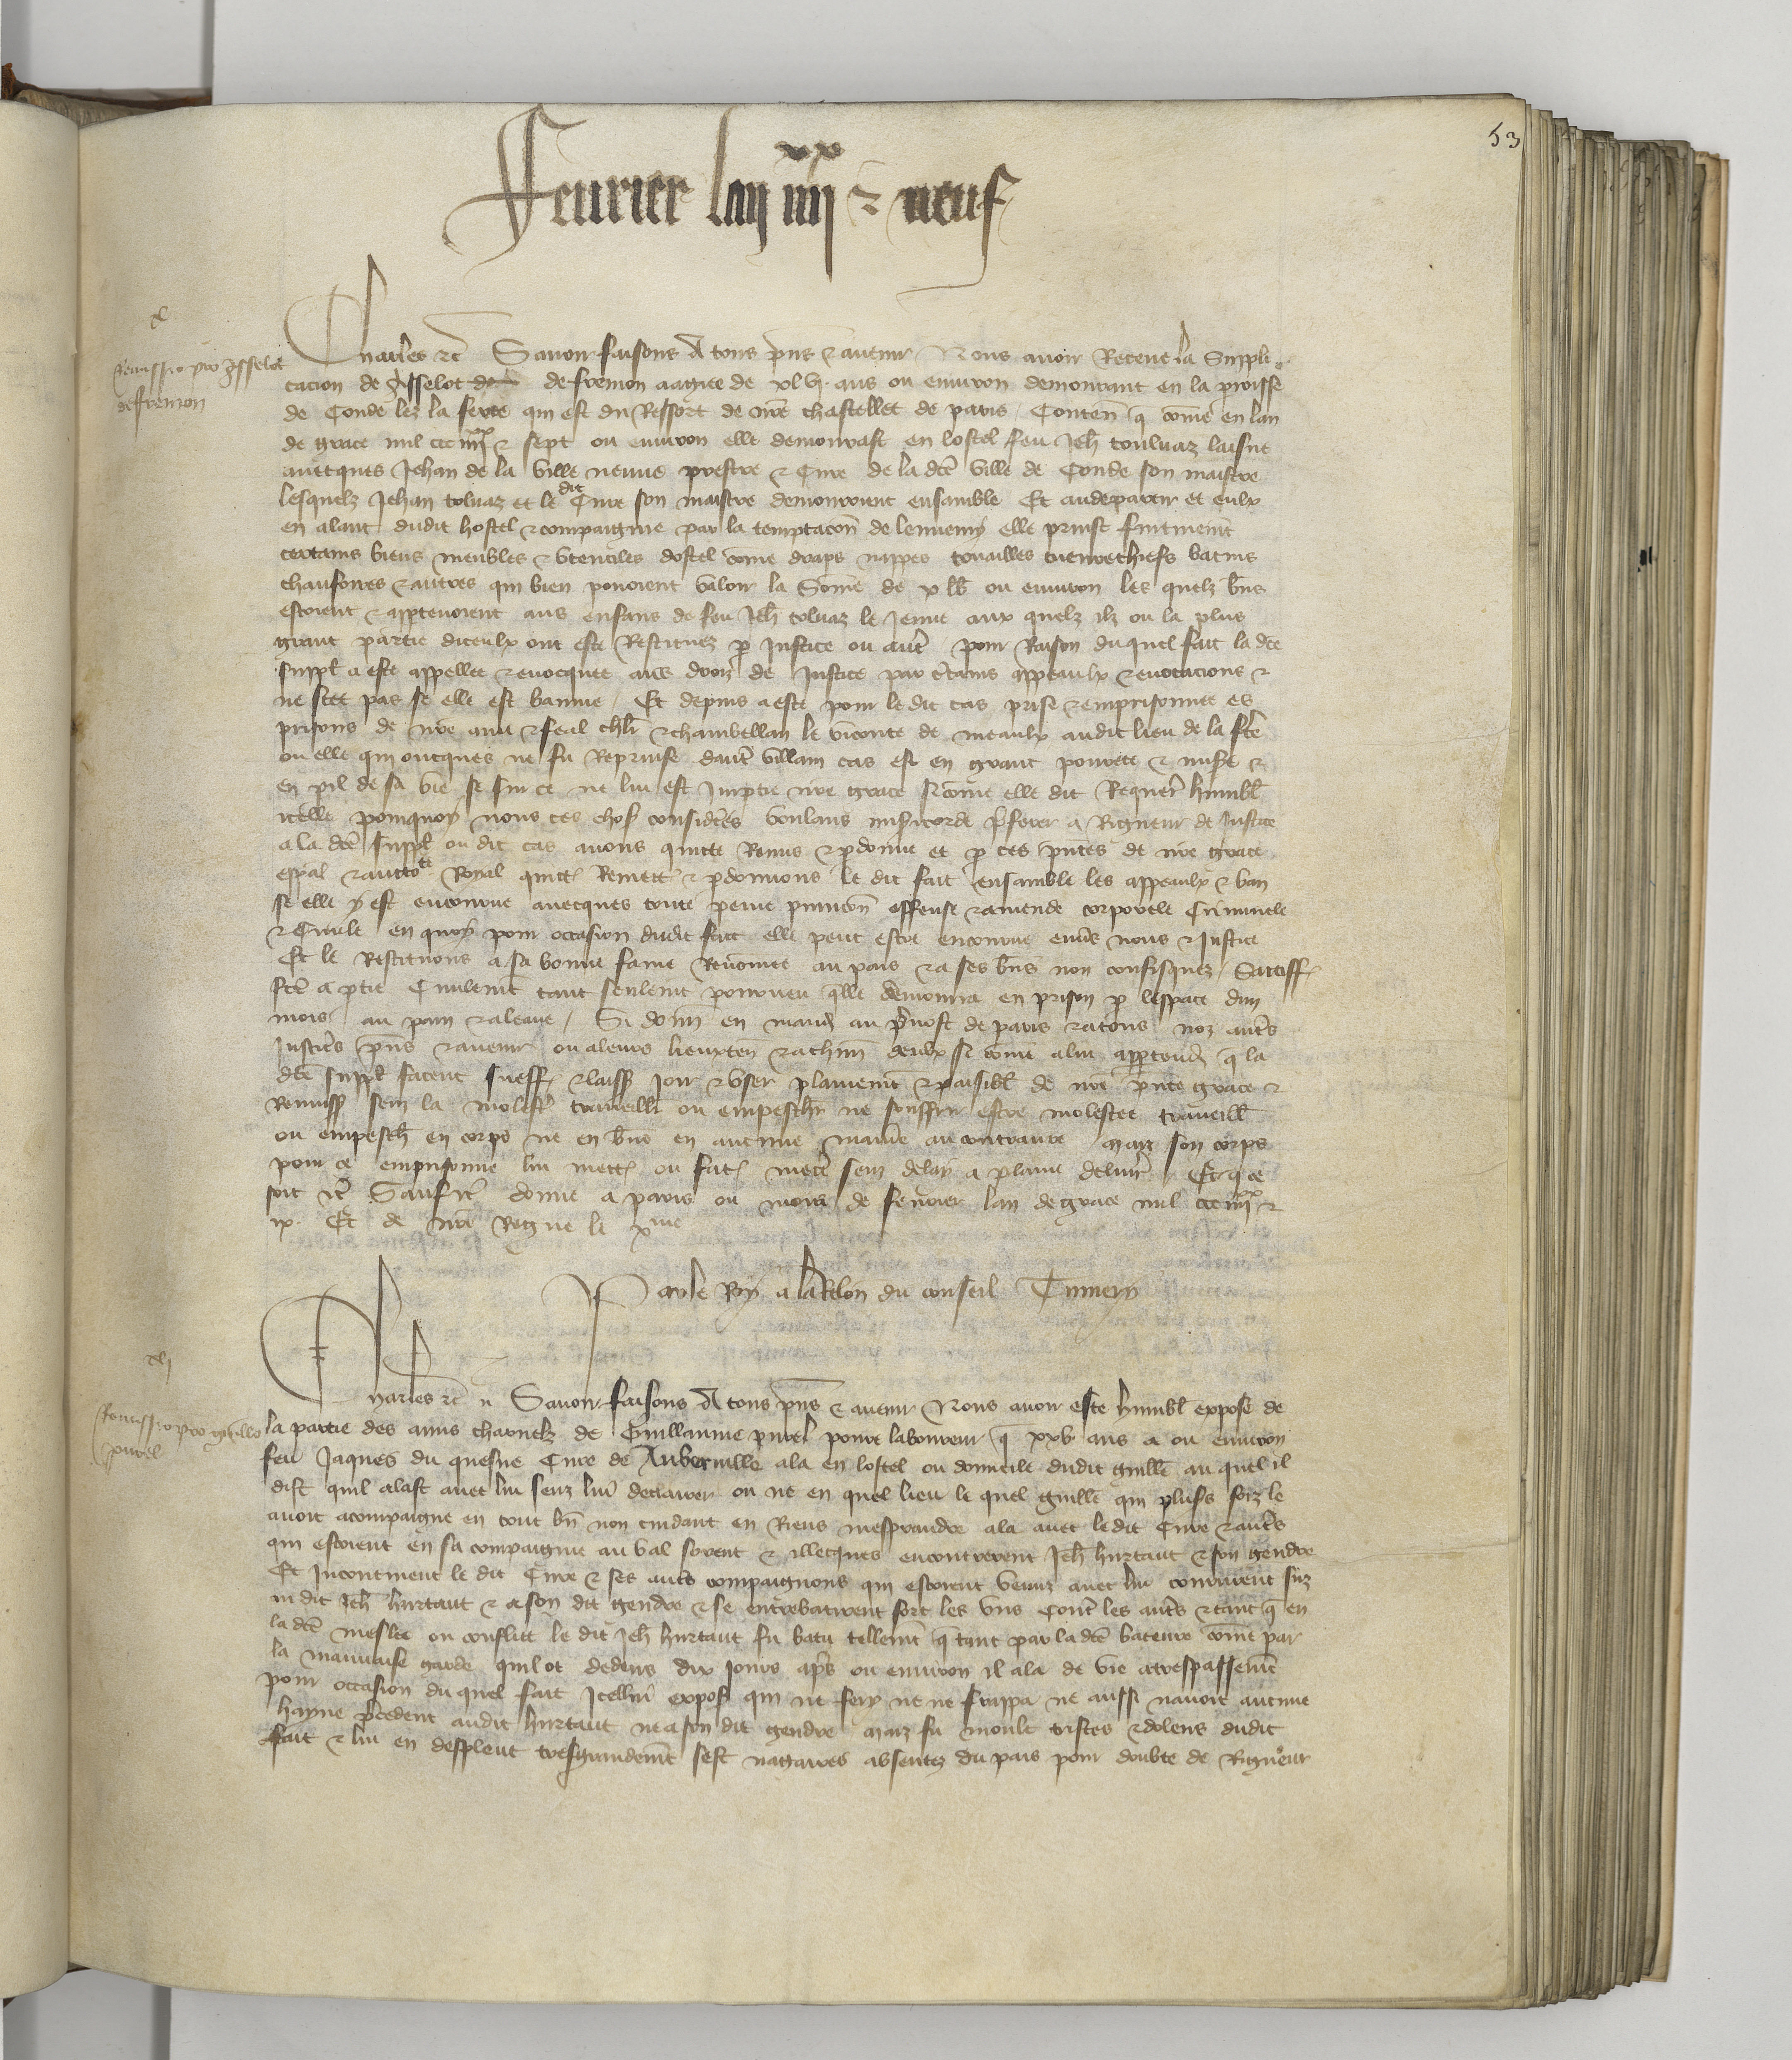 53
Feurier lan iiij xx & neuf
xl
Remissio pro Ysselot
de fremon
Charles &c Sauoir faisons A tous pñs & auenir Nous auoir Receue la Suppli
cacion de Ysselot de fremon aagiee de xlvj ans ou enuiron demourant en la parroisse
de Conde lez la ferte qui est du Ressort de nr̃e chastellet de paris / Conten̄ q̄ cōme en lan
de grace mil ccc iiij xx & sept ou enuiron elle demourast en lostel feu Jeh̃ touluaz laisne
auecques Jehan de la Ville neuue prestre & Cure de la dc̃e ville de Conde son maistre
lesquelz Jehan toluaz et le dit Cure son maistre demouroient ensamble Et au departir et eulx
en alant dudit hostel & compaignie par la temptacōn de lennemy elle prinst furtiuemẽt
certains biens meubles & vtenciles dostel cōme draps nappes touailles cueurechiefs bacins
chauferes & autres qui bien pouoient valoir la Sōme de x lb̃ ou enuiron les quelz b̃ns
estoient & apptenoient aus enfans de feu Jeh̃ toluaz le Jenne aux quelz ilz ou la plus
grant partie diceulx ont este Restituez p̱ Justice ou aut̃ pour Raison du quel fait la dc̃e
suppl̃ a este appellee & euocquee aus droiz de Justice par c̃tains appeaulx & euocacions &
ne scet pas se elle est banie / Et depuis a este pour le dit cas prise & emprisonnee es
prisons de nr̃e ame & feal chlr̃ & chambellan le viconte de meaulx audit lieu de la fc̃te
ou elle qui oncques ne fu Reprinse daut̃ villain cas est en grant pourete & mise &
en p̱il de sa vie se sur ce ne lui est Jmp̱tie nr̃e grace si cōme elle dit Requer̃ humbl̃
icelle pourquoy nous ces chos̃ considerees voulans misicorde p̃ferer a Rigueur de Justice
a la dc̃e suppl̃ ou dit cas auons quicte Remis & p̱donne et p̱ ces p̃ntes de nr̃e grace
esp̃al & auctote Royal quict̃ Remett̃ & p̱donnons le dit fait ensamble les appeaulx & ban
se elle y est encourue auecques toute peine punicōn offense & amende corporele Criminele
& Ciuile en quoy pour occasion dudit fait elle peut estre encourue enũs nous & Justice
Et le Restituons a sa bonne fame Renomee au pais & a ses b̃ns non confisquez / Satisff̃
fc̃e a p̱tie Ciuilemt̃ tant seulemt̃ pourueu q̃lle demourra en prison p̱ lespace dun
mois au pain & a leaue / Si dōn en mand̃ au p̃uost de paris & a tous noz aut̃s
Justic̃s p̃ns & auenir ou a leurs lieuxten̄ & a chūn deulx si cōme a lui app̱tendr̃ q̄ la
dc̃e suppl̃ facent sueff̃r & laiss̃ Joir & vser plainemt̃ & paisibl̃ de nr̃e p̃nte grace &
Remiss̃ sens la molest̃ trauueillr̃ ou empeschr̃ ne souffrir estre molestee trauueill̃
ou empesch̃ en corps ne en b̃ns en aucune maniẽ au contraire / maiz son corps
pour ce emprisonne lui mett̃ ou fac̃ mect̃r senz delay a plaine deliur̃ / Et q̄ ce
soit &c̃ Sauf &c̃ donne a paris ou mois de feurier lan de grace mil ccc iiij xx &
ix. Et de nr̃e Regne le x me
Par le Roy a la Relōn du conseil Tumery
xlj
Remissio pro guill̃o
purel
Charles &c n Sauoir faisons A tous p̃ns & auenir Nous auoir este humbl̃ expose de
la partie des amis charnelz de Guillaume purel poure laboureur q̄ xxv ans a ou enuiron
feu Jaques du quesne Cure de Auberuille ala en lostel ou domicile dudit guill̃e au quel il
dist quil alast auec lui senz lui declairer ou ne en quel lieu le quel guill̃e qui plus̃s foiz le
auoit acompaigne en tout bñ non cuidant en Riens mesprandre ala auec le dit Cure & aut̃s
qui estoient en sa compaignie au val sorent & illecques encontrerent Jeh̃ hurtaut & son gendre
Et Jncontinent le dit Cure & ses aut̃s compaignons qui estoient venuz auec lui coururent suz
audit Jeh̃ hurtaut & a son dit gendre & se entrebatirent fort les vns cont̃e les aut̃s & tant q̄ en
la dc̃e meslee ou conflict le dit Jeh̃ hurtaut fu batu tellemt̃ q̄ tant par la dc̃e bateure cōme par
la mauuaise garde quil ot dedens dix Jours ap̃s ou enuiron il ala de vie a trespassemt̃
pour occasion du quel fait Jcellui expos̃ qui ne fery ne ne frappa ne aussi nauoit aucune
hayne p̃cedent audit hurtaut ne a son dit gendre maiz fu moult tristes & dolens dudit
fait & lui en despleut tresgrandemt̃ sest nagaires absentez du pais pour doubte de Rigueur